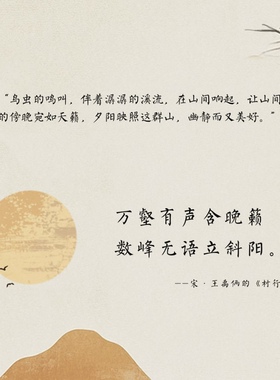 “鸟虫的鸣叫，伴着潺潺的溪流，在山间响起，让山间
的傍晚宛如天籁，夕阳映照这群山，幽静而又美好。”
万壑有声含晚籁
数峰无语立斜阳。
--宋·王禹偁的《村行